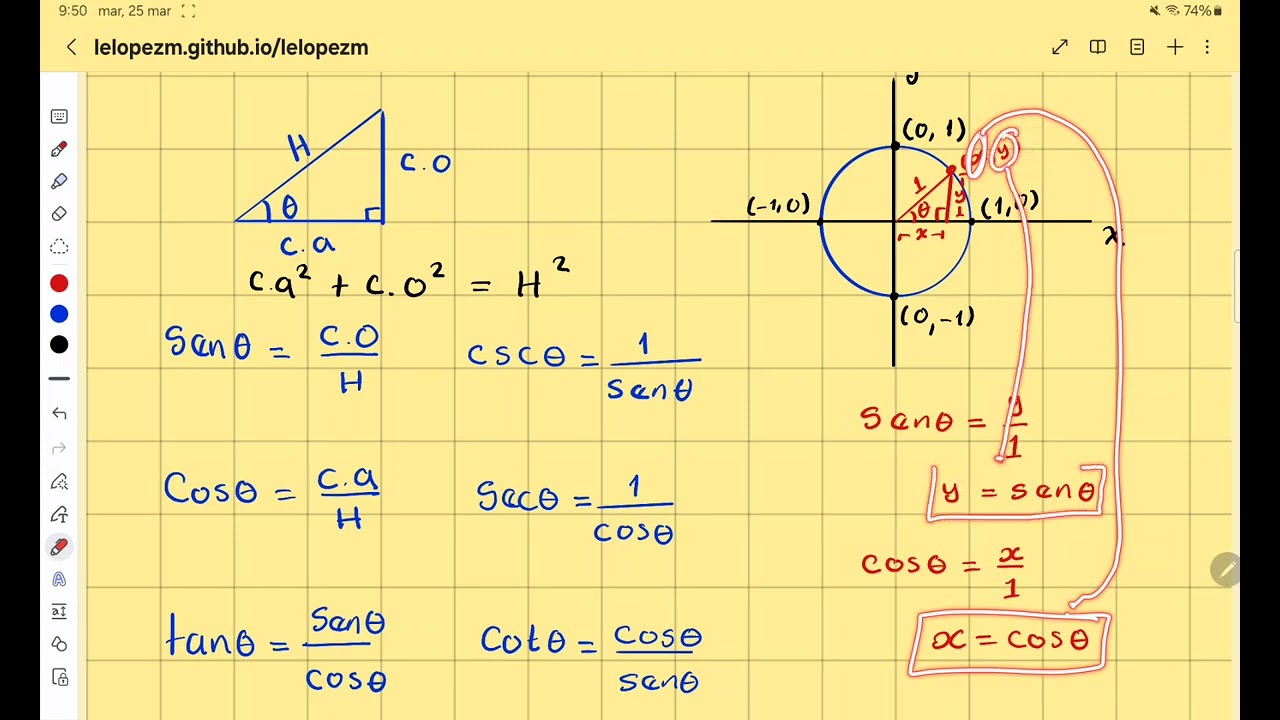 9:50 mar, 25 mar 74%
lelopezm.github.io/lelopezm
H
C.O
θ
C.a
C.a² + C.O² = H²
Senθ = C.O / H
CSCθ = 1 / Senθ
Cosθ = C.a / H
Secθ = 1 / Cosθ
tanθ = Senθ / Cosθ
Cotθ = Cosθ / Senθ
(0, 1)
y
(-1,0)
1
θ
y
x
(1,0)
x
(0,-1)
Senθ = y / 1
y = senθ
Cosθ = x / 1
x = cosθ